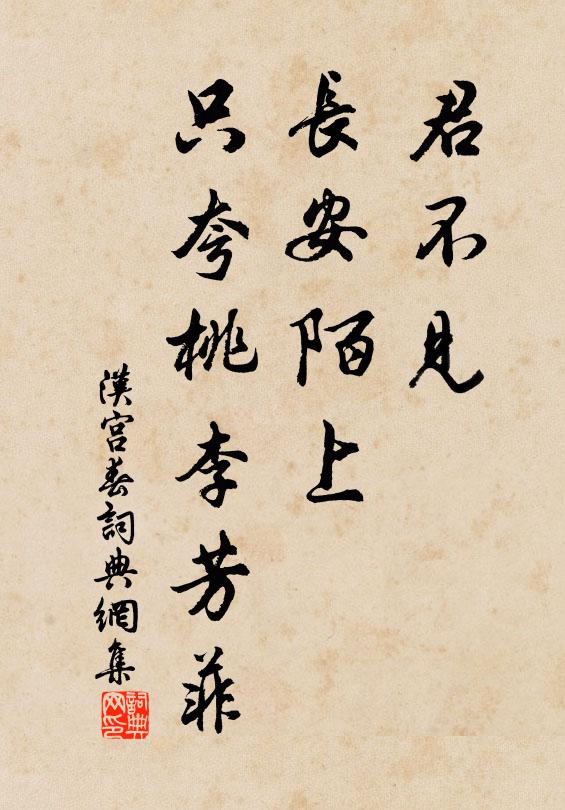 君不見
長安陌上
只夸桃李芳菲
漢宮春詞典網集
詞典
网印